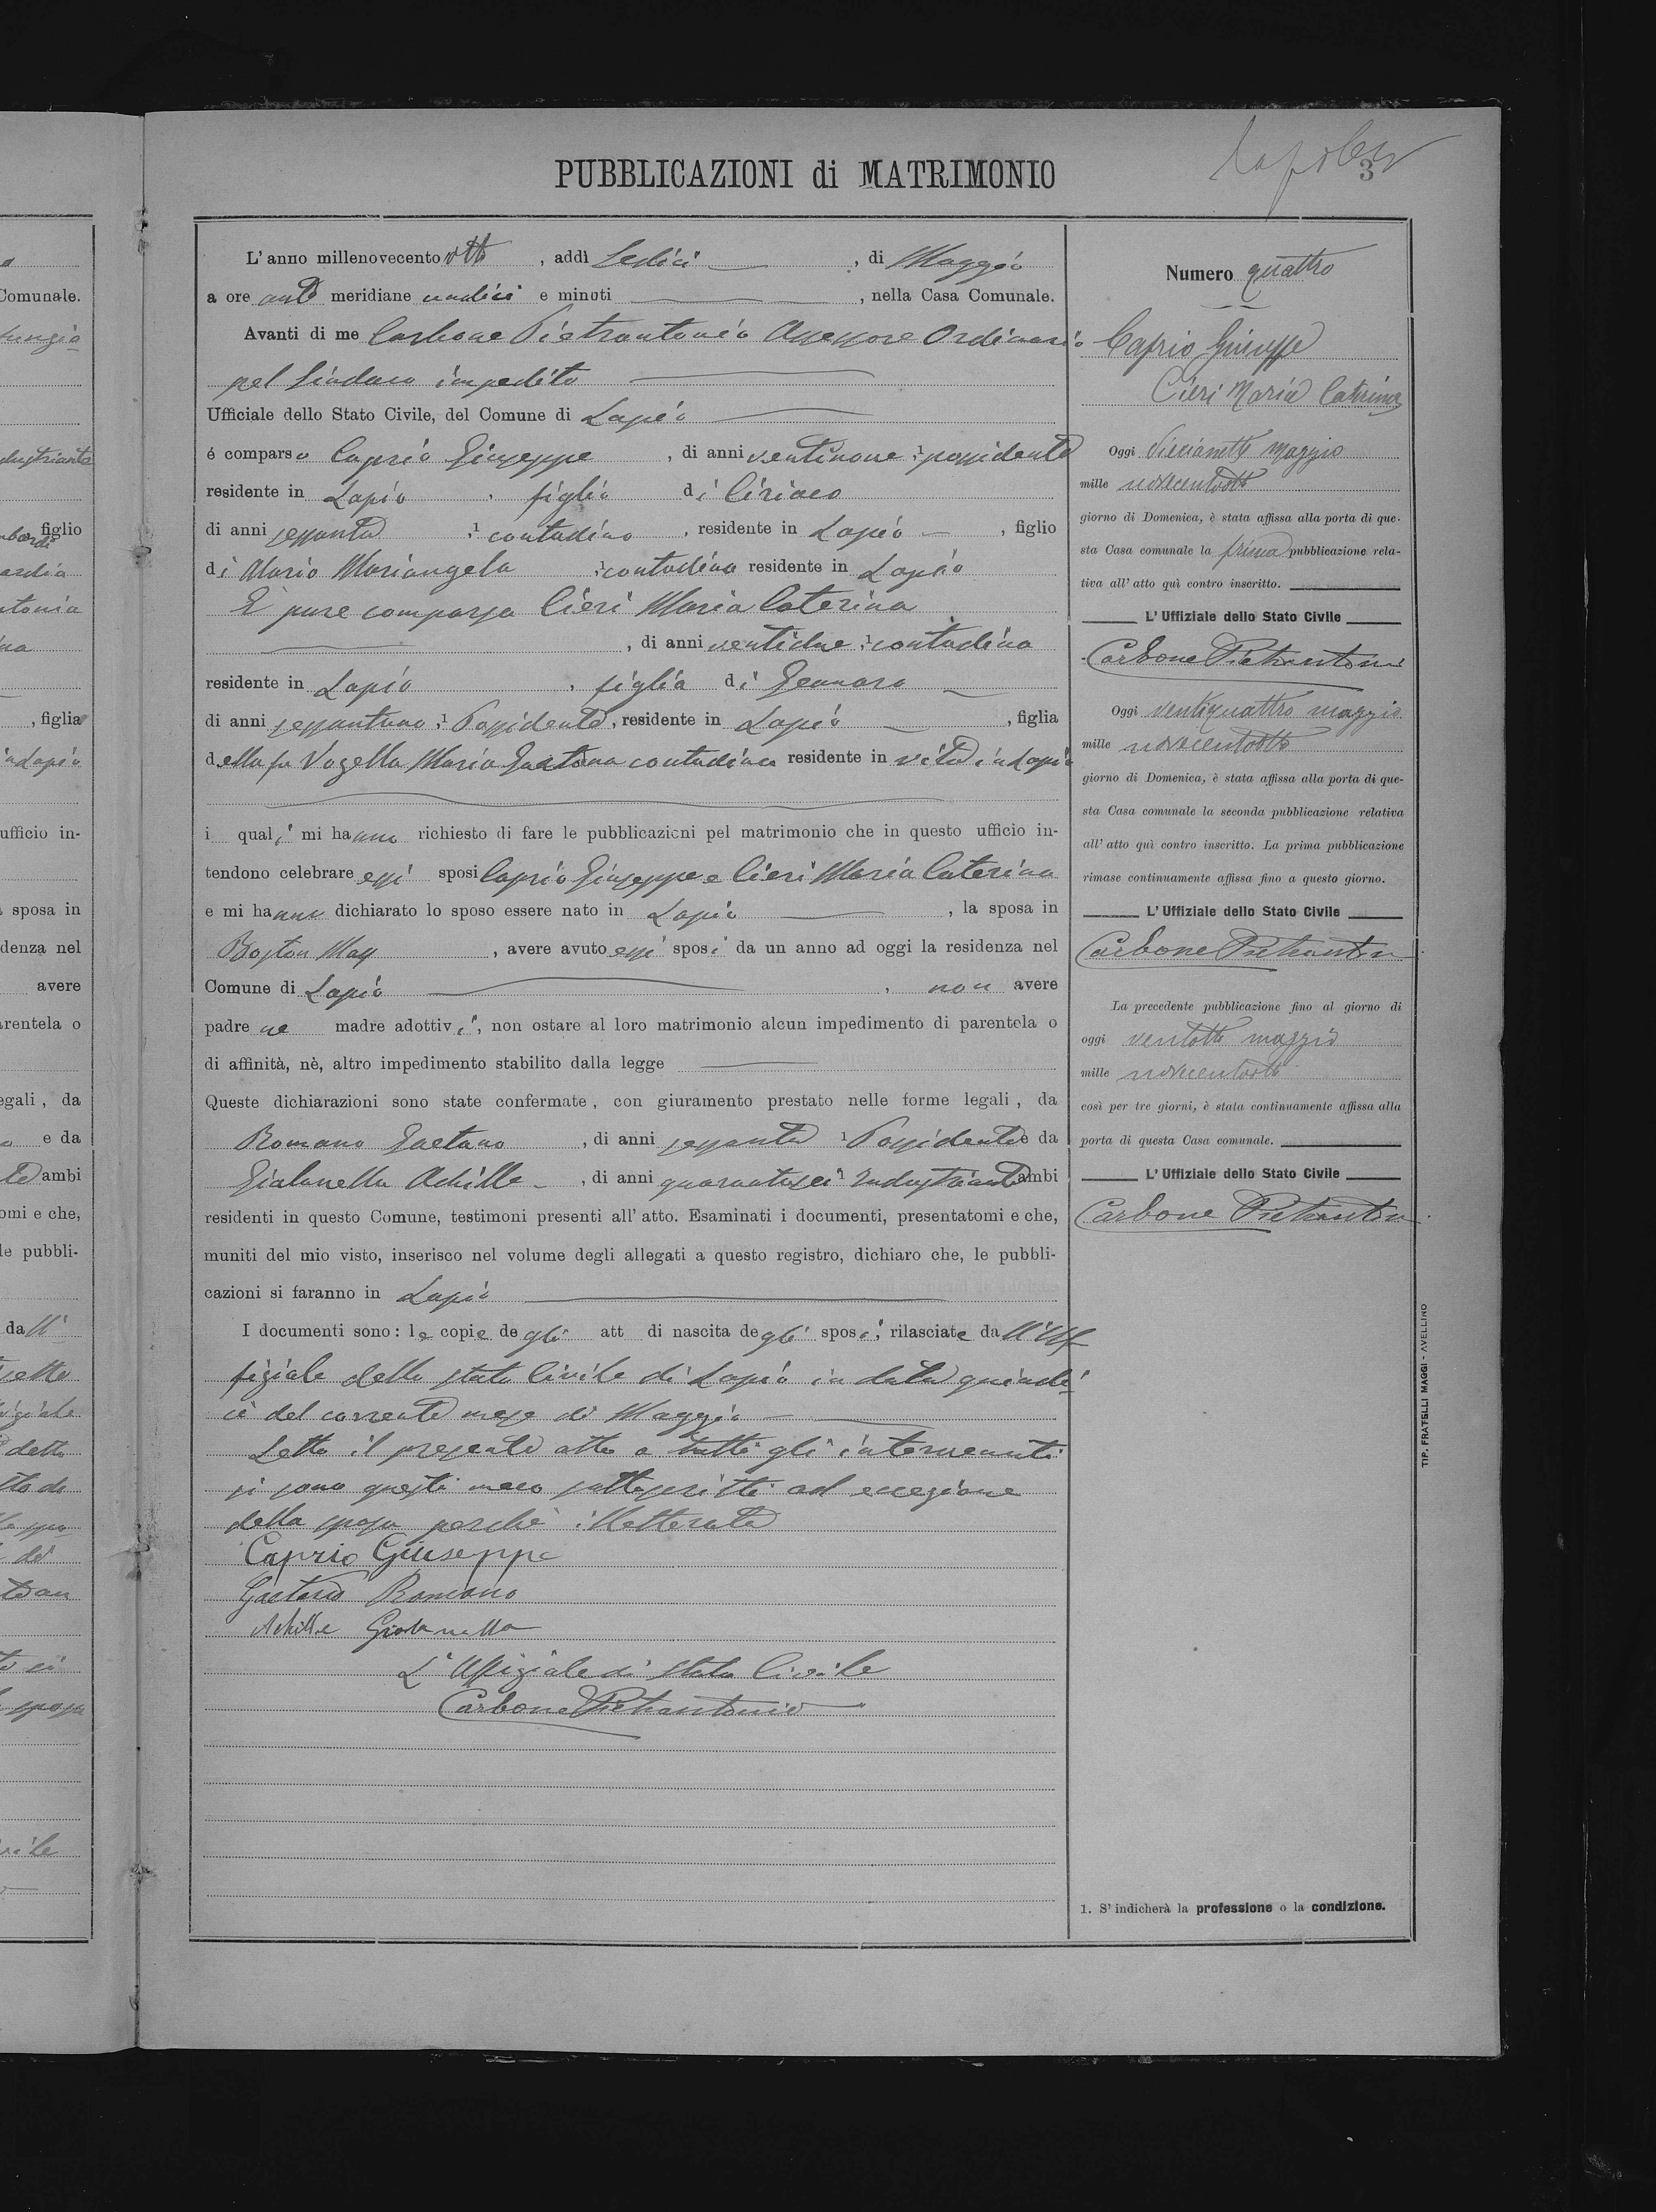 PUBBLICAZIONI di MATRIMONIO
3
L'anno millenovecento otto, addì Sedici, di Maggio
a ore ante meridiane undici e minuti, nella Casa Comunale.
Avanti di me Carbone Pietrantonio Assessore Ordinario
pel Sindaco impedito
Ufficiale dello Stato Civile, del Comune di Lapio
é comparso Caprio Giuseppe, di anni ventinove, 1 possidente
residente in Lapio, figlio di Ciriaco
di anni sessanta, 1 contadino, residente in Lapio, figlio
di Iloria Mariangela 1 contadina residente in Lapio
È pure comparsa Cieri Maria Caterina
, di anni ventidue, 1 contadina
residente in Lapio, figlia di Gennaro
di anni sessantuno, 1 Possidente, residente in Lapio, figlia
della fu Vozella Maria Gaetana contadina residente in vita in Lapio
i quali mi hanno richiesto di fare le pubblicazioni pel matrimonio che in questo ufficio in-
tendono celebrare essi sposi Caprio Giuseppe e Cieri Maria Caterina
e mi hanno dichiarato lo sposo essere nato in Lapio, la sposa in
Boston Mass, avere avuto essi sposi da un anno ad oggi la residenza nel
Comune di Lapio, non avere
padre ne madre adottivi, non ostare al loro matrimonio alcun impedimento di parentela o
di affinità, nè, altro impedimento stabilito dalla legge
Queste dichiarazioni sono state confermate, con giuramento prestato nelle forme legali, da
Romano Gaetano, di anni sessanta 1 Possidente e da
Gialanella Achille, di anni quarantasei 1 Industriante ambi
residenti in questo Comune, testimoni presenti all'atto. Esaminati i documenti, presentatomi e che,
muniti del mio visto, inserisco nel volume degli allegati a questo registro, dichiaro che, le pubbli-
cazioni si faranno in Lapio
I documenti sono: le copie degli att di nascita degli sposi, rilasciate dall'Uf
fiziale dello stato Civile di Lapio in data quindi
ci del corrente mese di Maggio
Letto il presente atto a tutti gli intervenuti
si sono questi meco sottoscritti ad eccezione
della sposa perchè illetterata
Caprio Giuseppe
Gaetano Romano
Achille Gialanella
L'Uffiziale di Stato Civile
Carbone Pietrantonio
Numero quattro
Caprio Giuseppe
Cieri Maria Caterina
Oggi Diciassette maggio
mille novecentotto
giorno di Domenica, è stata affissa alla porta di que-
sta Casa comunale la prima pubblicazione rela-
tiva all'atto quì contro inscritto.
L'Uffiziale dello Stato Civile
Carbone Pietrantonio
Oggi ventiquattro maggio
mille novecentotto
giorno di Domenica, è stata affissa alla porta di que-
sta Casa comunale la seconda pubblicazione relativa
all'atto quì contro inscritto. La prima pubblicazione
rimase continuamente affissa fino a questo giorno.
L'Uffiziale dello Stato Civile
Carbone Pietrantonio
La precedente pubblicazione fino al giorno di
oggi ventotto maggio
mille novecentotto
così per tre giorni, è stata continuamente affissa alla
porta di questa Casa comunale.
L'Uffiziale dello Stato Civile
Carbone Pietrantonio
1. S'indicherà la professione o la condizione.
TIP. FRATELLI MAGGI - AVELLINO